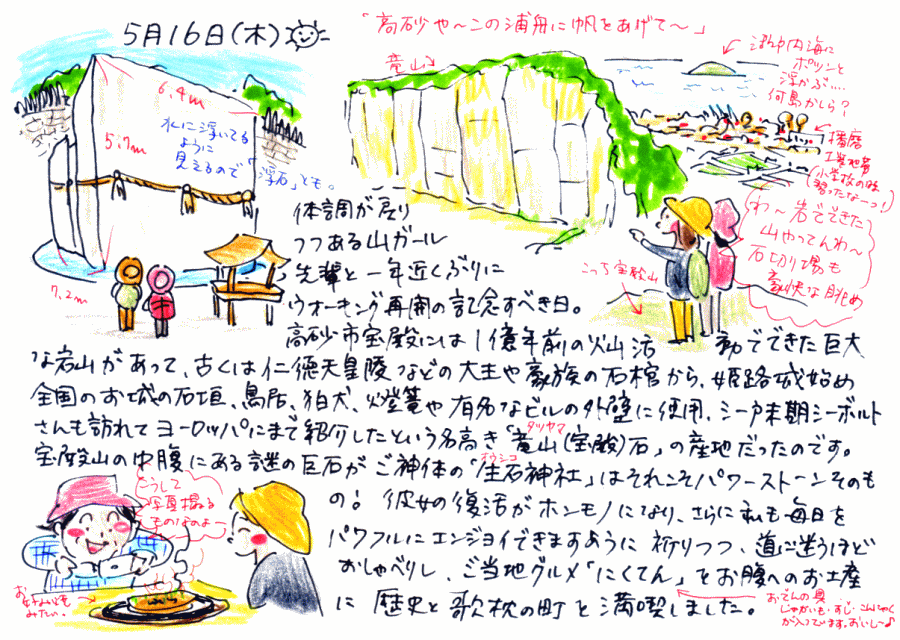 5月16日(木)
「高砂や～この浦舟に帆をあげて～」
6.4m
5.7m
7.2m
水に浮いてる
ように
見えるので「浮石」とも。
竜山
瀬戸内海に
ポツンと
浮かぶ…
何島かしら?
播磨
工業地帯
(小学校の時
習ったなーっ!)
わ～岩でできた
山やってんわ～
石切り場も
豪快な眺め
こっち宝殿山
体調が戻り
つつある山ガール
先輩と一年近くぶりに
ウオーキング再開の記念すべき日。
高砂市宝殿には1億年前の火山活動でできた巨大
な岩山があって、古くは仁徳天皇陵などの大王や豪族の石棺から、姫路城始め
全国のお城の石垣、鳥居、狛犬、燈篭や有名なビルの外壁に使用、江戸末期シーボルト
さんも訪れてヨーロッパにまで紹介したという名高き「竜山(宝殿)石」の産地だったのです。
タツヤマ
宝殿山の中腹にある謎の巨石がご神体の「生石神社」はそれこそパワーストーンそのも
オウシコ
の! 彼女の復活がホンモノになり、さらに私も毎日を
パワフルにエンジョイできますように祈りつつ、道に迷うほど
おしゃべりし、ご当地グルメ「にくてん」をお腹へのお土産
に 歴史と歌枕の町を満喫しました。
どうして
写真撮る
ものなのよー
お好みやき
みたい。
おでんの具
じゃがいも・すじ・こんにゃく
が入っています。おいし～♪